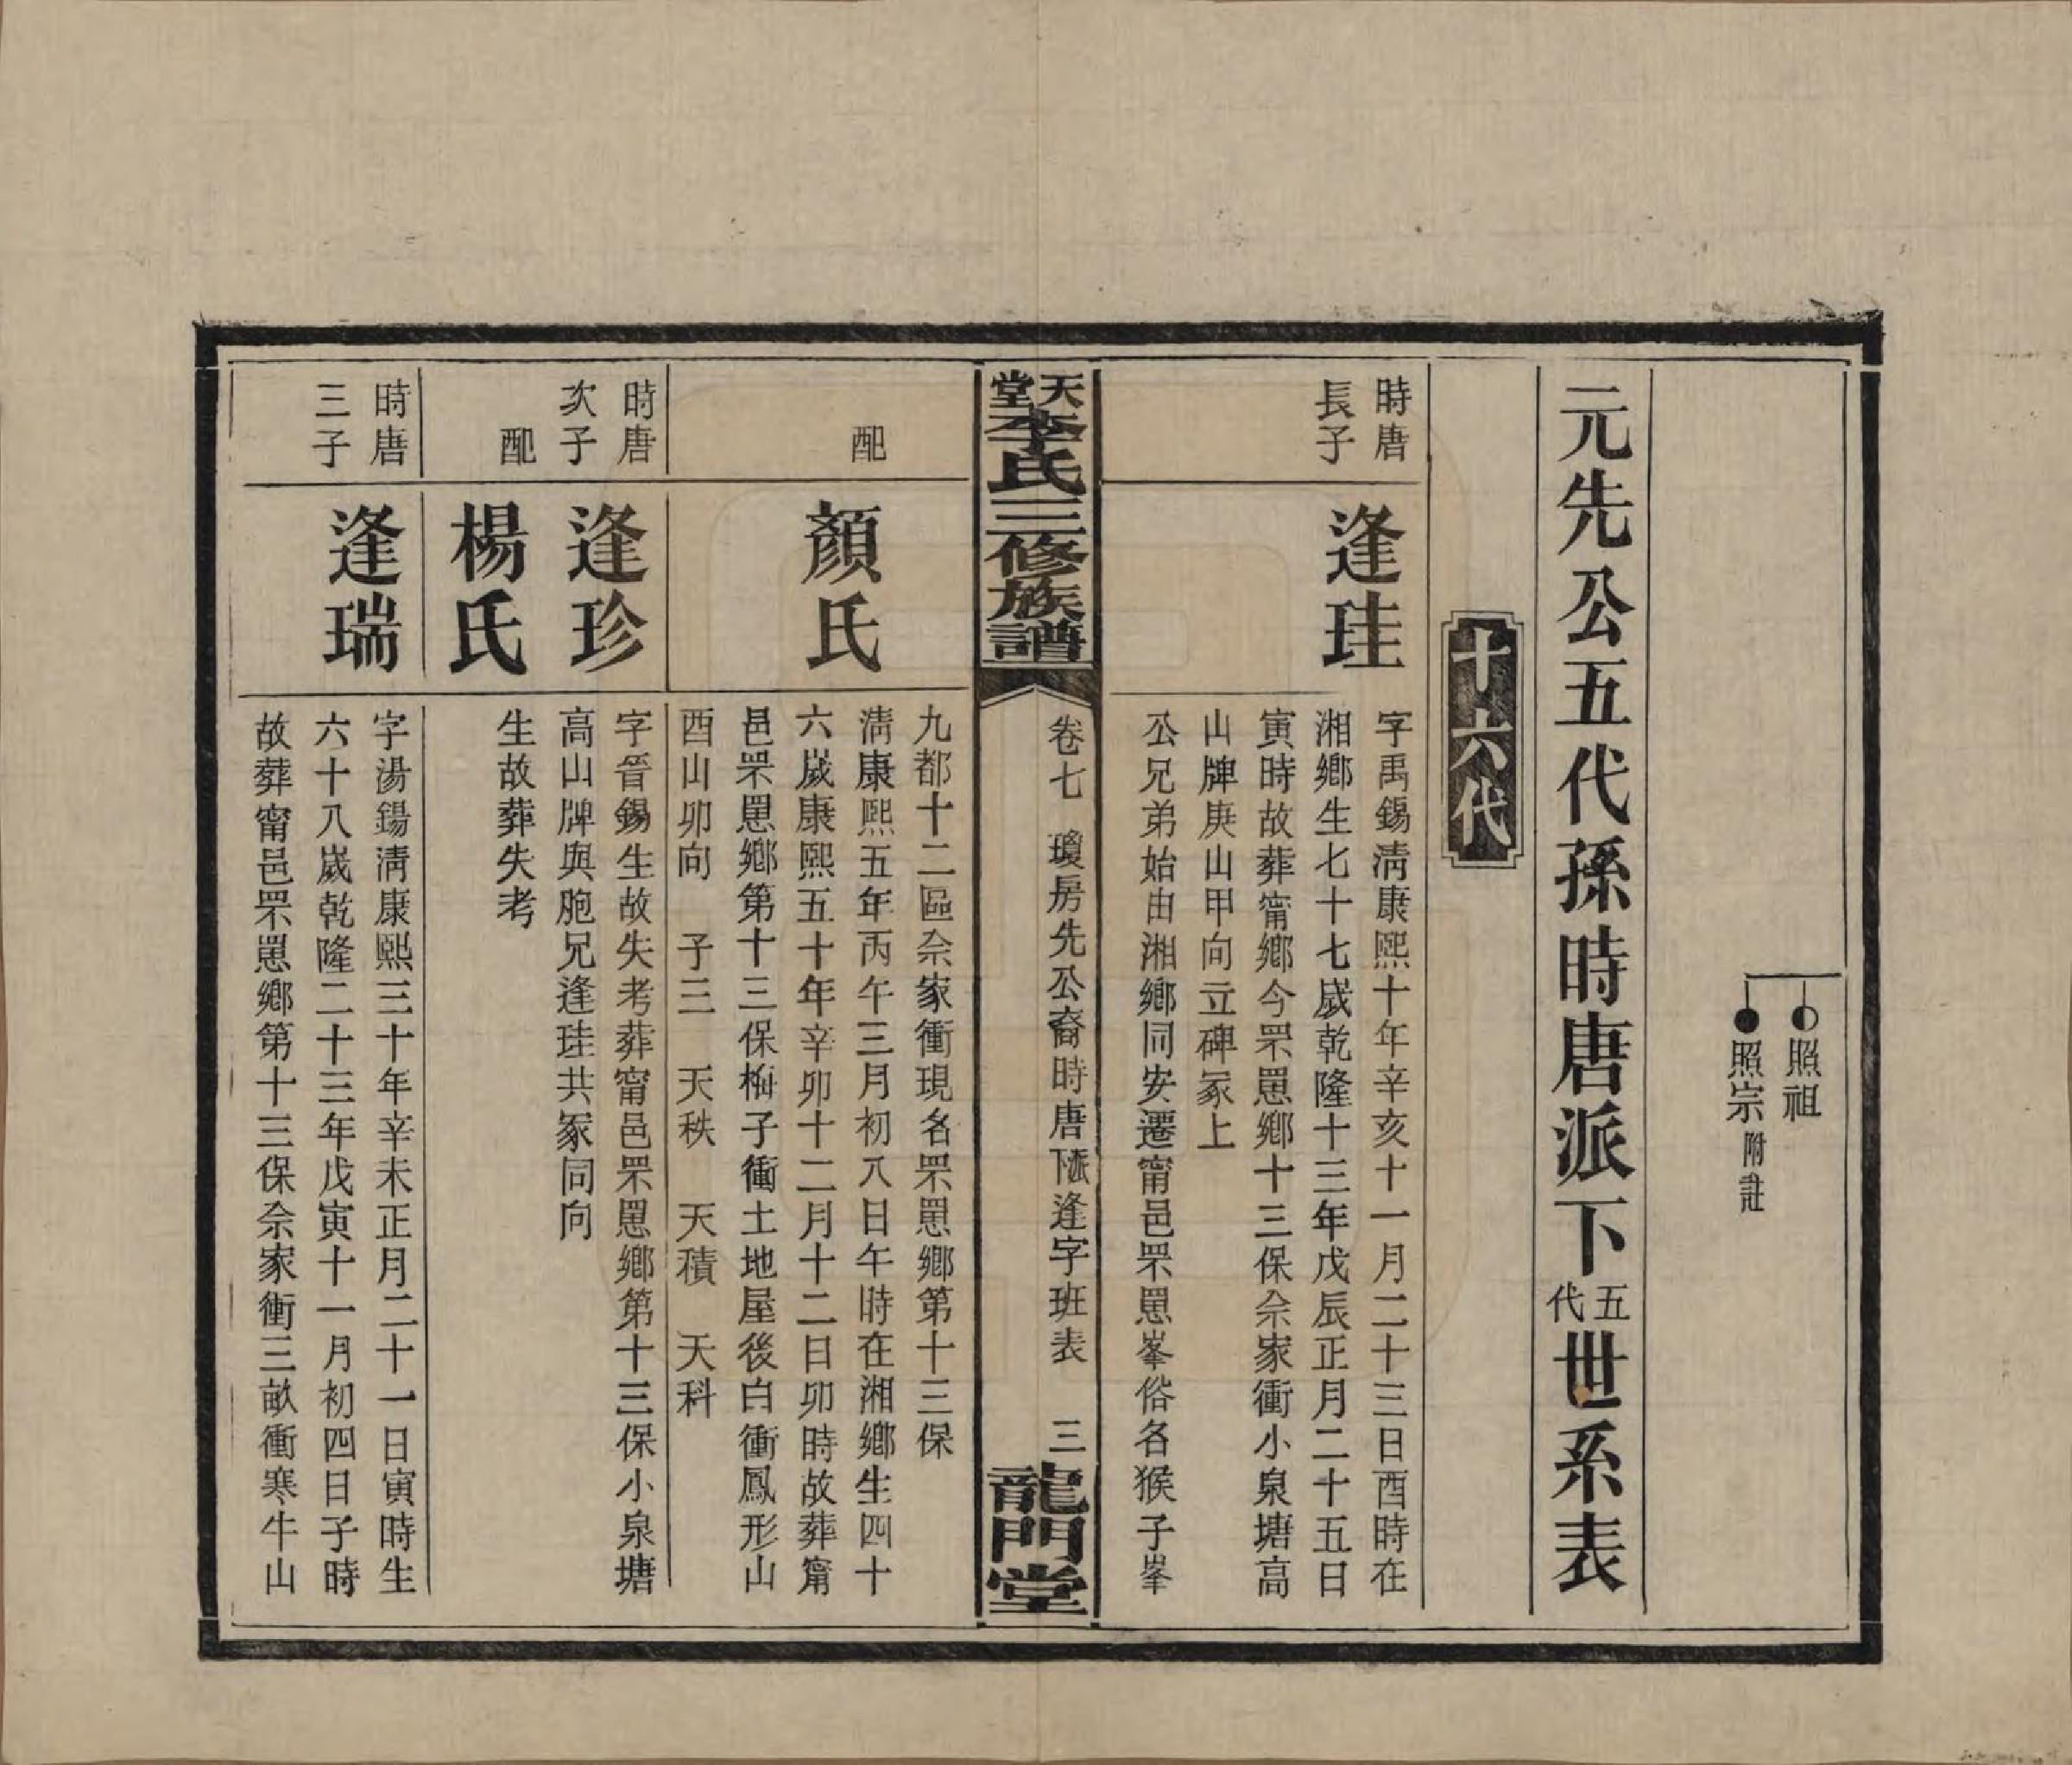 照祖
照宗附註
元先公五代孫時唐派下五代世系表
十六代
時唐
長子
逢珪
字禹錫清康熙十年辛亥十一月二十三日酉時在
湘鄉生七十七歲乾隆十三年戊辰正月二十五日
寅時故葬甯鄉今罘罳鄉十三保佘家衝小泉塘高
山牌庚山甲向立碑冢上
公兄弟始由湘鄉同安遷甯邑罘罳峯俗名猴子峯
天堂李氏三修族譜
卷七 瓊房先公裔時唐派下逢字班表 三
龍門堂
九都十二區佘家衝現名罘罳鄉第十三保
配
顏氏
清康熙五年丙午三月初八日午時在湘鄉生四十
六歲康熙五十年辛卯十二月十二日卯時故葬甯
邑罘罳鄉第十三保梅子衝土地屋後白衝鳳形山
酉山卯向 子三 天秩 天積 天科
時唐
次子
逢珍
字晉錫生故失考葬甯邑罘罳鄉第十三保小泉塘
高山牌與胞兄逢珪共冢同向
配
楊氏
生故葬失考
時唐
三子
逢瑞
字湯錫清康熙三十年辛未正月二十一日寅時生
六十八歲乾隆二十三年戊寅十一月初四日子時
故葬甯邑罘罳鄉第十三保佘家衝三畝衝寒牛山